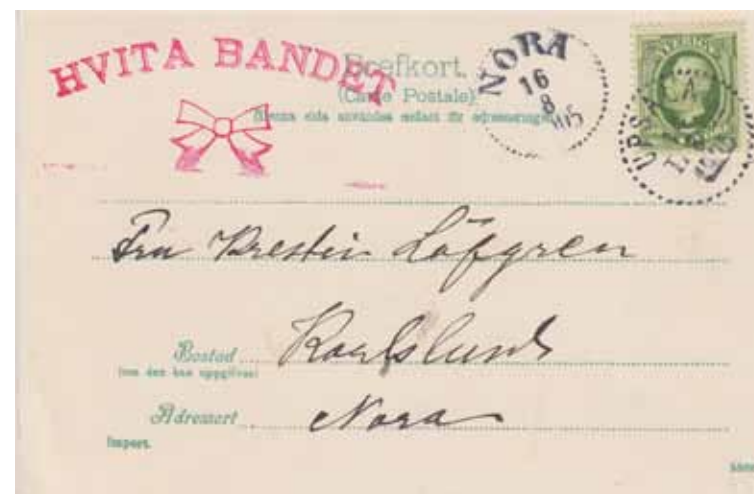 HVITA BANDET
Brefkort.
(Carte Postale)
Denna sida användes endast för adresseringen
NORA
16
8
SVERIGE
UPSALA
Fru Kerstin Löfgren
Bostad Karlslund
(om den kan uppgifvas)
Adressort Nora
Import.